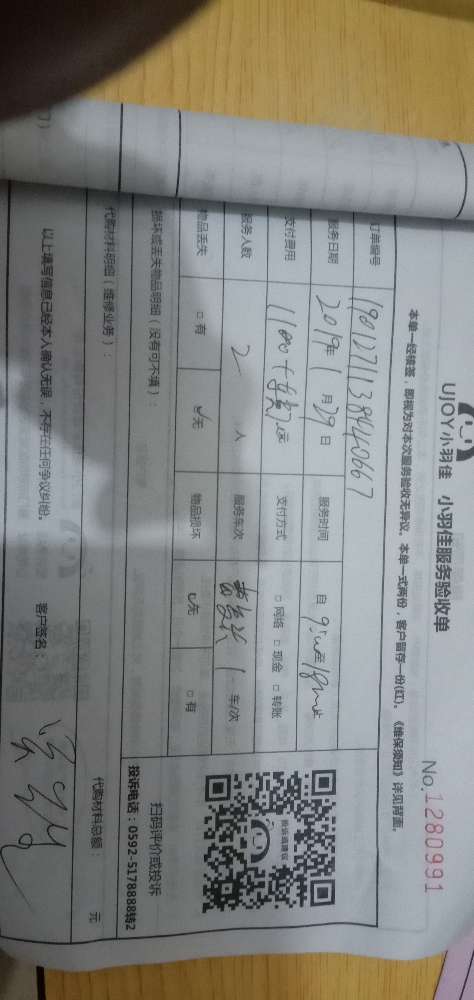 UJOY小羽佳 小羽佳服务验收单
No.1280991
本单一经核签，即视为对本次服务验收无异议。本单一式两份，客户留存一份(红)。《维保须知》详见背面。
订单编号
服务日期 2019年1月29日 服务时间 自
支付费用 支付方式 □网络 □现金 □转账
服务人数 2人 服务车次 1车/次
物品丢失 □有 无 物品损坏 无 □有
扫码评价或投诉
投诉电话：0592-5178888转2
损坏或丢失物品明细（没有可不填）：
代购材料明细（维修业务）： 代购材料总额： 元
以上填写信息已经本人确认无误，不存在任何争议纠纷。 客户签名：